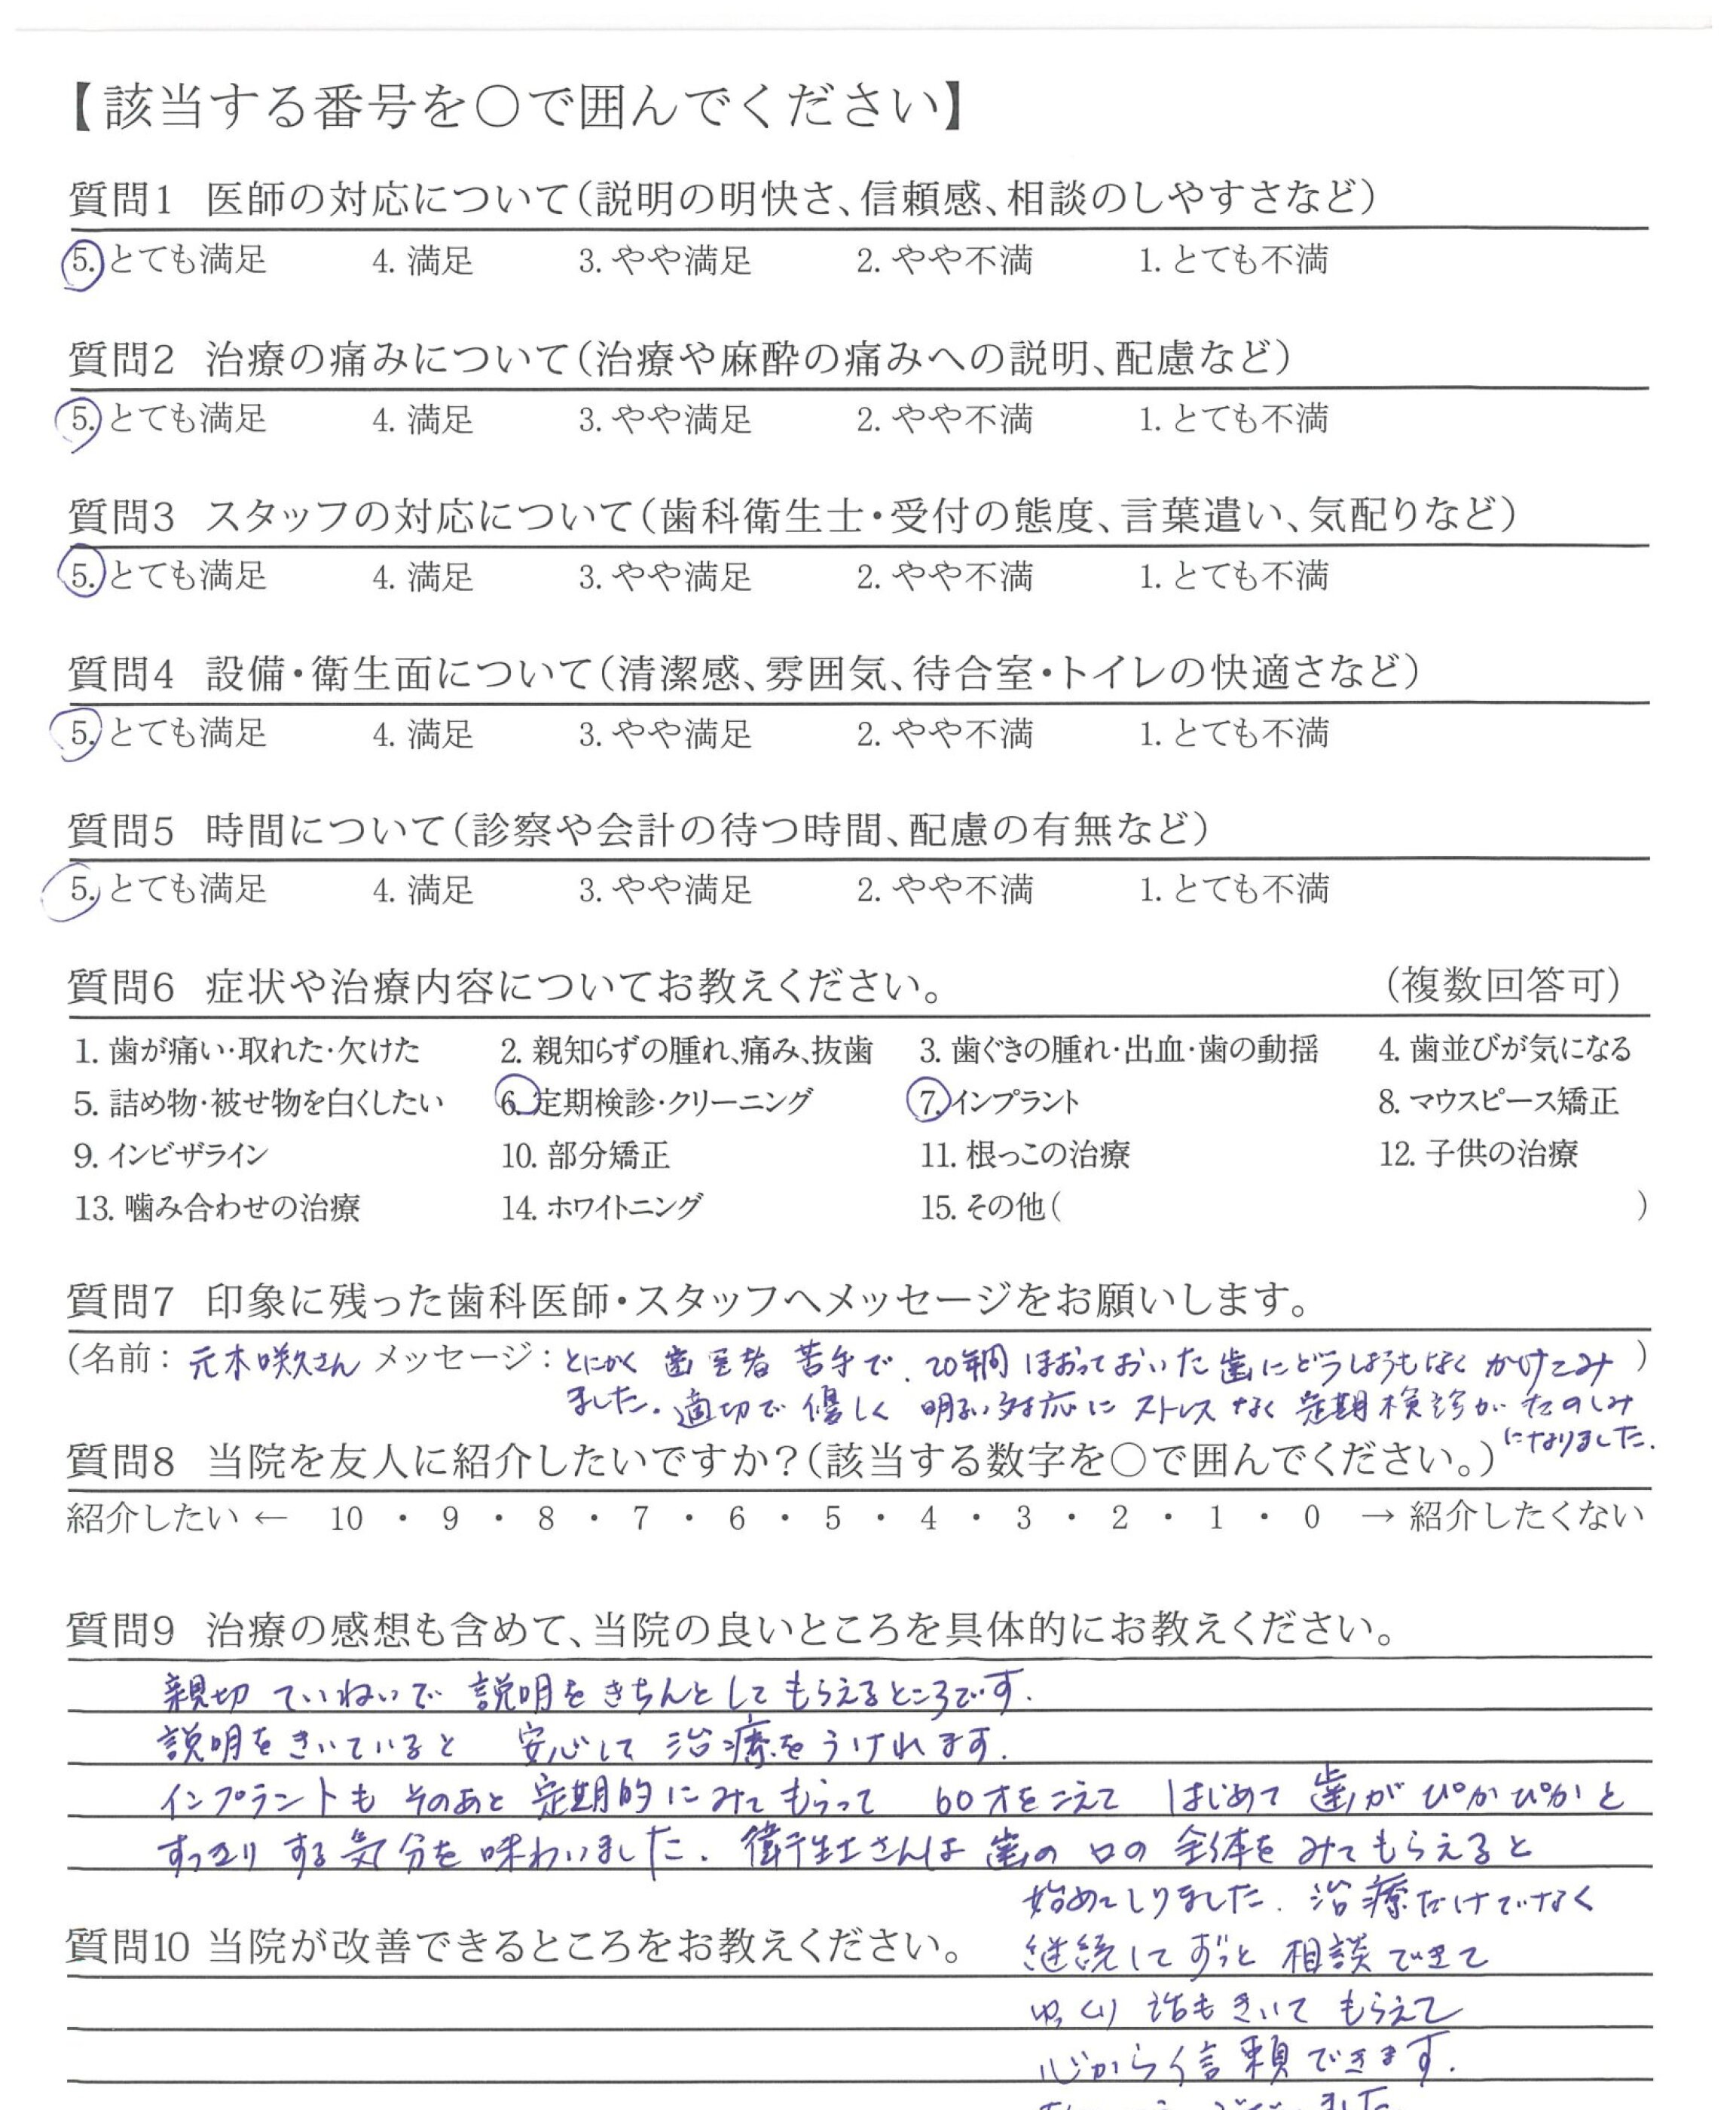 【該当する番号を〇で囲んでください】
質問1 医師の対応について(説明の明快さ、信頼感、相談のしやすさなど)
5. とても満足 4. 満足 3. やや満足 2. やや不満 1. とても不満
質問2 治療の痛みについて(治療や麻酔の痛みへの説明、配慮など)
5. とても満足 4. 満足 3. やや満足 2. やや不満 1. とても不満
質問3 スタッフの対応について(歯科衛生士・受付の態度、言葉遣い、気配りなど)
5. とても満足 4. 満足 3. やや満足 2. やや不満 1. とても不満
質問4 設備・衛生面について(清潔感、雰囲気、待合室・トイレの快適さなど)
5. とても満足 4. 満足 3. やや満足 2. やや不満 1. とても不満
質問5 時間について(診察や会計の待つ時間、配慮の有無など)
5. とても満足 4. 満足 3. やや満足 2. やや不満 1. とても不満
質問6 症状や治療内容についてお教えください。 (複数回答可)
1. 歯が痛い・取れた・欠けた 2. 親知らずの腫れ、痛み、抜歯 3. 歯ぐきの腫れ・出血・歯の動揺 4. 歯並びが気になる
5. 詰め物・被せ物を白くしたい 6. 定期検診・クリーニング 7. インプラント 8. マウスピース矯正
9. インビザライン 10. 部分矯正 11. 根っこの治療 12. 子供の治療
13. 噛み合わせの治療 14. ホワイトニング 15. その他( )
質問7 印象に残った歯科医師・スタッフへメッセージをお願いします。
(名前: 元木咲久さん メッセージ: とにかく 歯医者 苦手で、20年間 ほおっておいた歯にどうしようもなく かけこみ )
ました。適切で 優しく 明るい対応に ストレス なく 定期検診が たのしみ
になりました.
質問8 当院を友人に紹介したいですか?(該当する数字を〇で囲んでください。)
紹介したい ← 10 ・ 9 ・ 8 ・ 7 ・ 6 ・ 5 ・ 4 ・ 3 ・ 2 ・ 1 ・ 0 → 紹介したくない
質問9 治療の感想も含めて、当院の良いところを具体的にお教えください。
親切 ていねいで 説明をきちんとしてもらえるところです.
説明をきいていると 安心して 治療をうけれます.
インプラントも そのあと 定期的にみてもらって 60才をこえて はじめて 歯がぴかぴかと
すっきり する気分を味わいました. 衛生士さんは 歯の 口の 全体を みてもらえると
始めてしりました. 治療だけでなく
質問10 当院が改善できるところをお教えください。
継続してずっと 相談できて
ゆっくり 話もきいて もらえて
心から信頼できます.